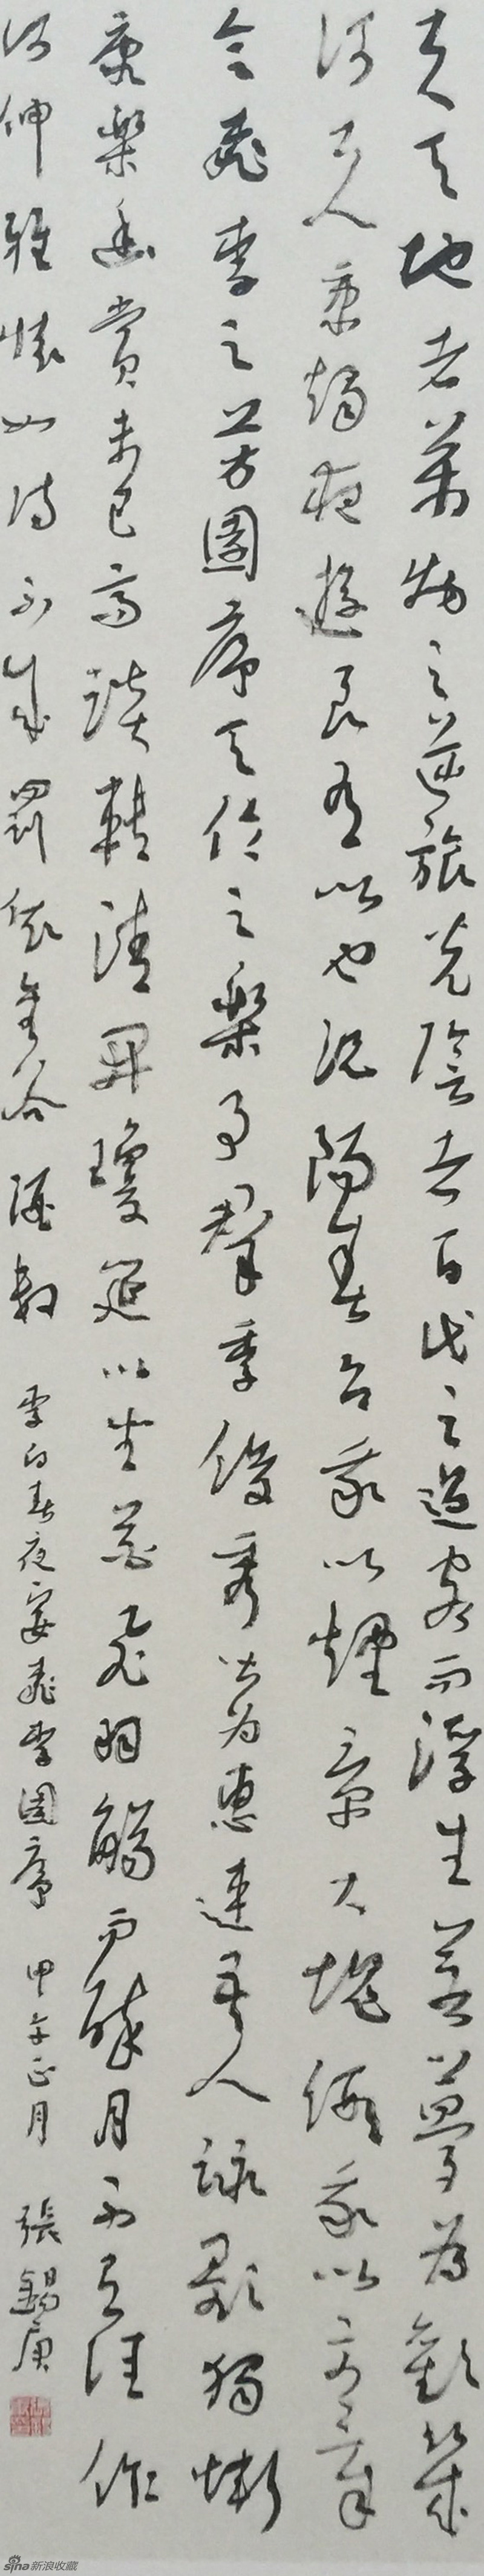 夫天地者萬物之逆旅光陰者百代之過客而浮生若夢為歡幾
何古人秉燭夜遊良有以也況陽春召我以煙景大塊假我以文章
會桃李之芳園序天倫之樂事群季俊秀皆為惠連吾人詠歌獨慚
康樂幽賞未已高談轉清開瓊筵以坐花飛羽觴而醉月不有佳作
何伸雅懷如詩不成罰依金谷酒數 李白春夜宴桃李園序 甲午正月 張錫庚
sina新浪收藏